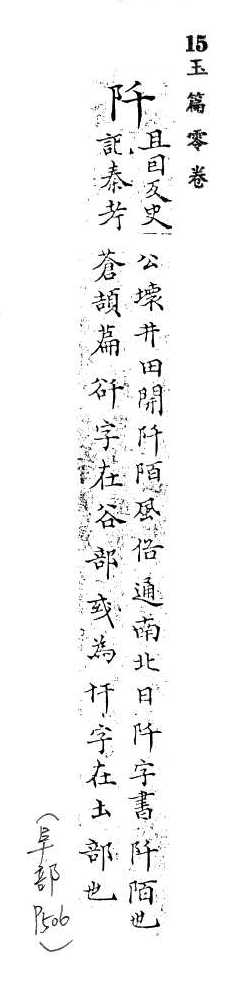 15玉篇零卷
阡
且田反史
記秦孝
公壞井田開阡陌風俗通南北曰阡字書阡陌也
蒼頡篇谸字在谷部或為圱字在土部也
（阜部P506）